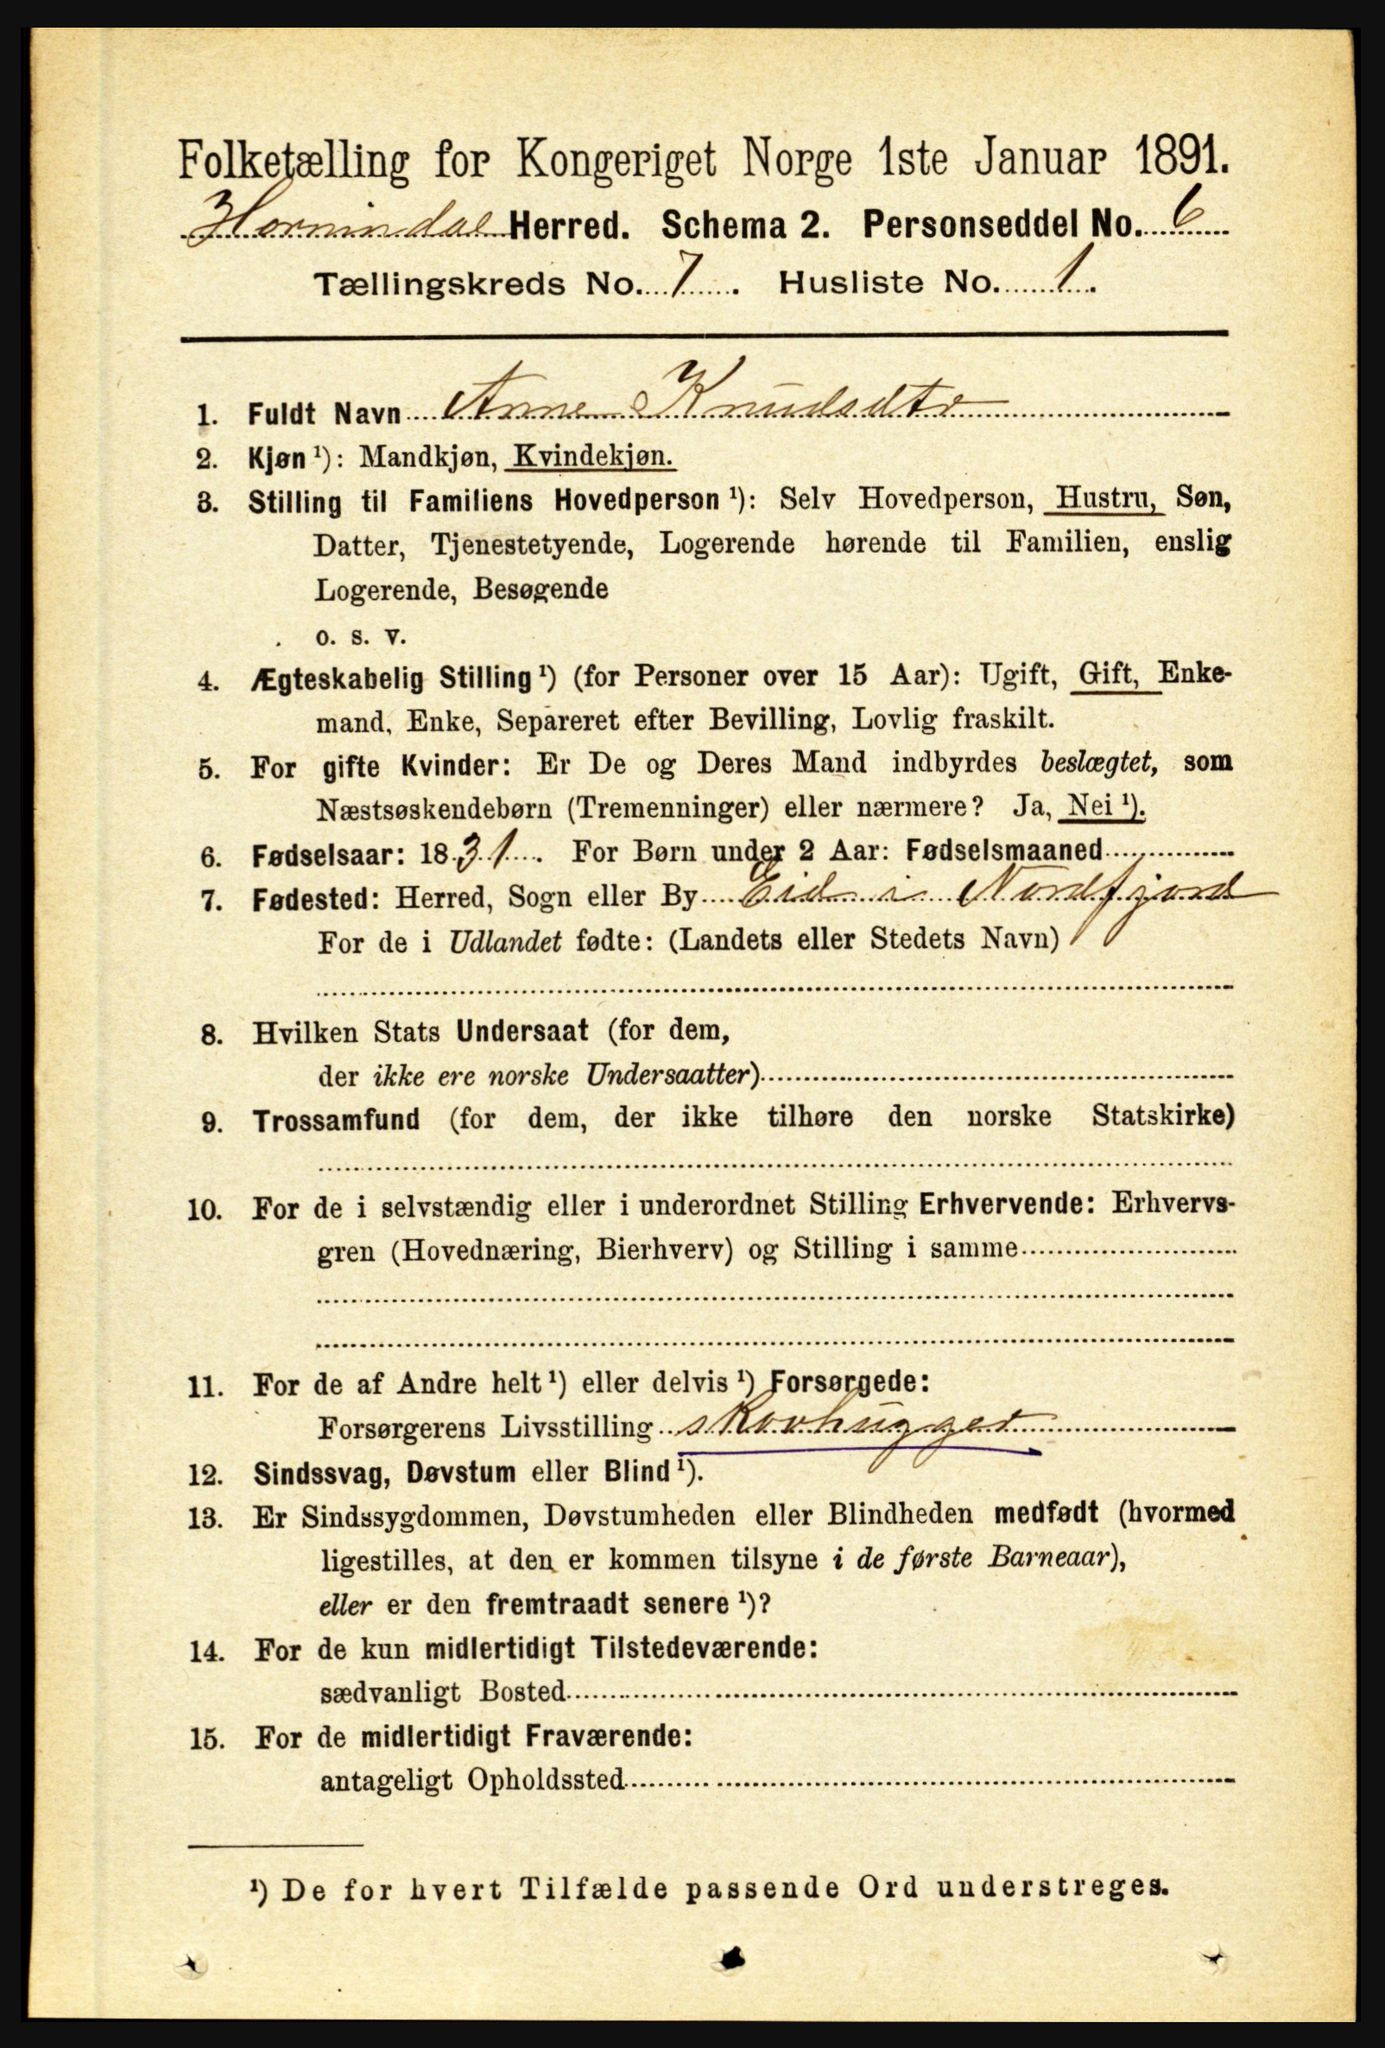 Folketælling for Kongeriget Norge 1ste Januar 1891.
Hornindal Herred. Schema 2. Personseddel No. 6
Tællingskreds No. 7. Husliste No. 1.
1. Fuldt Navn Anne Knudsdtr
2. Kjøn ¹): Mandkjøn, Kvindekjøn.
3. Stilling til Familiens Hovedperson ¹): Selv Hovedperson, Hustru, Søn,
Datter, Tjenestetyende, Logerende hørende til Familien, enslig
Logerende, Besøgende
o. s. v.
4. Ægteskabelig Stilling ¹) (for Personer over 15 Aar): Ugift, Gift, Enke-
mand, Enke, Separeret efter Bevilling, Lovlig fraskilt.
5. For gifte Kvinder: Er De og Deres Mand indbyrdes beslægtet, som
Næstsøskendebørn (Tremenninger) eller nærmere? Ja, Nei ¹).
6. Fødselsaar: 1831. For Børn under 2 Aar: Fødselsmaaned
7. Fødested: Herred, Sogn eller By Eid i Nordfjord
For de i Udlandet fødte: (Landets eller Stedets Navn)
8. Hvilken Stats Undersaat (for dem,
der ikke ere norske Undersaatter)
9. Trossamfund (for dem, der ikke tilhøre den norske Statskirke)
10. For de i selvstændig eller i underordnet Stilling Erhvervende: Erhvervs-
gren (Hovednæring, Bierhverv) og Stilling i samme
11. For de af Andre helt ¹) eller delvis ¹) Forsørgede:
Forsørgerens Livsstilling skovhugger
12. Sindssvag, Døvstum eller Blind ¹).
13. Er Sindssygdommen, Døvstumheden eller Blindheden medfødt (hvormed
ligestilles, at den er kommen tilsyne i de første Barneaar),
eller er den fremtraadt senere ¹)?
14. For de kun midlertidigt Tilstedeværende:
sædvanligt Bosted
15. For de midlertidigt Fraværende:
antageligt Opholdssted
¹) De for hvert Tilfælde passende Ord understreges.